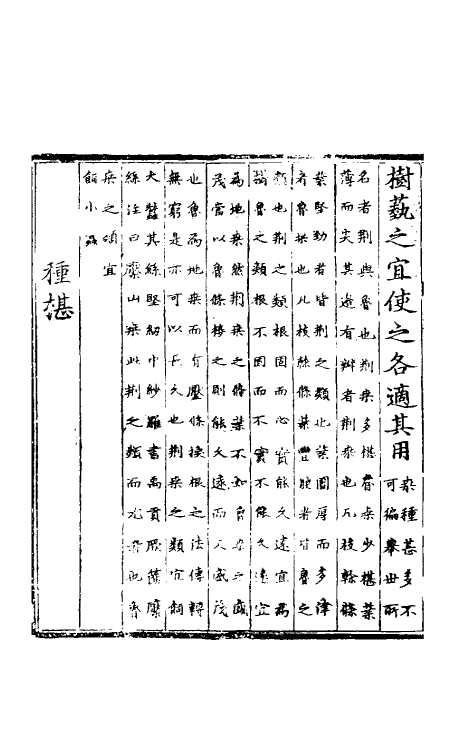 樹藝之宜使之各適其用
桑種甚多不
可徧舉世所
名者荆與魯也荆桑多椹魯桑少椹葉
薄而尖其邊有瓣者荆桑也凡枝幹條
葉堅勁者皆荆之類也葉圓厚而多津
者魯桑也凡枝幹條葉豐腴者皆魯之
類也荆之類根固而心實能久遠宜為
樹魯之類根不固而不實不能久遠宜
為地桑然荆桑之條葉不如魯桑之盛
茂當以魯條接之則能久遠而又盛茂
也魯為地桑而有壓條換根之法傳轉
無窮是亦可以長久也荆桑之類宜飼
大蠶其絲堅紉中紗羅書禹貢厥篚檿
絲注曰檿山桑此荆之類而尤者也魯
桑之類宜
飼小蠶
種椹